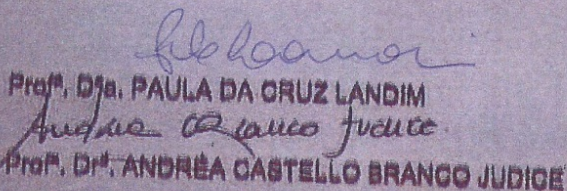 Profª. Drª. PAULA DA CRUZ LANDIM
Andréa CBranco Judice
Profª. Drª. ANDRÉA CASTELLO BRANCO JUDICE